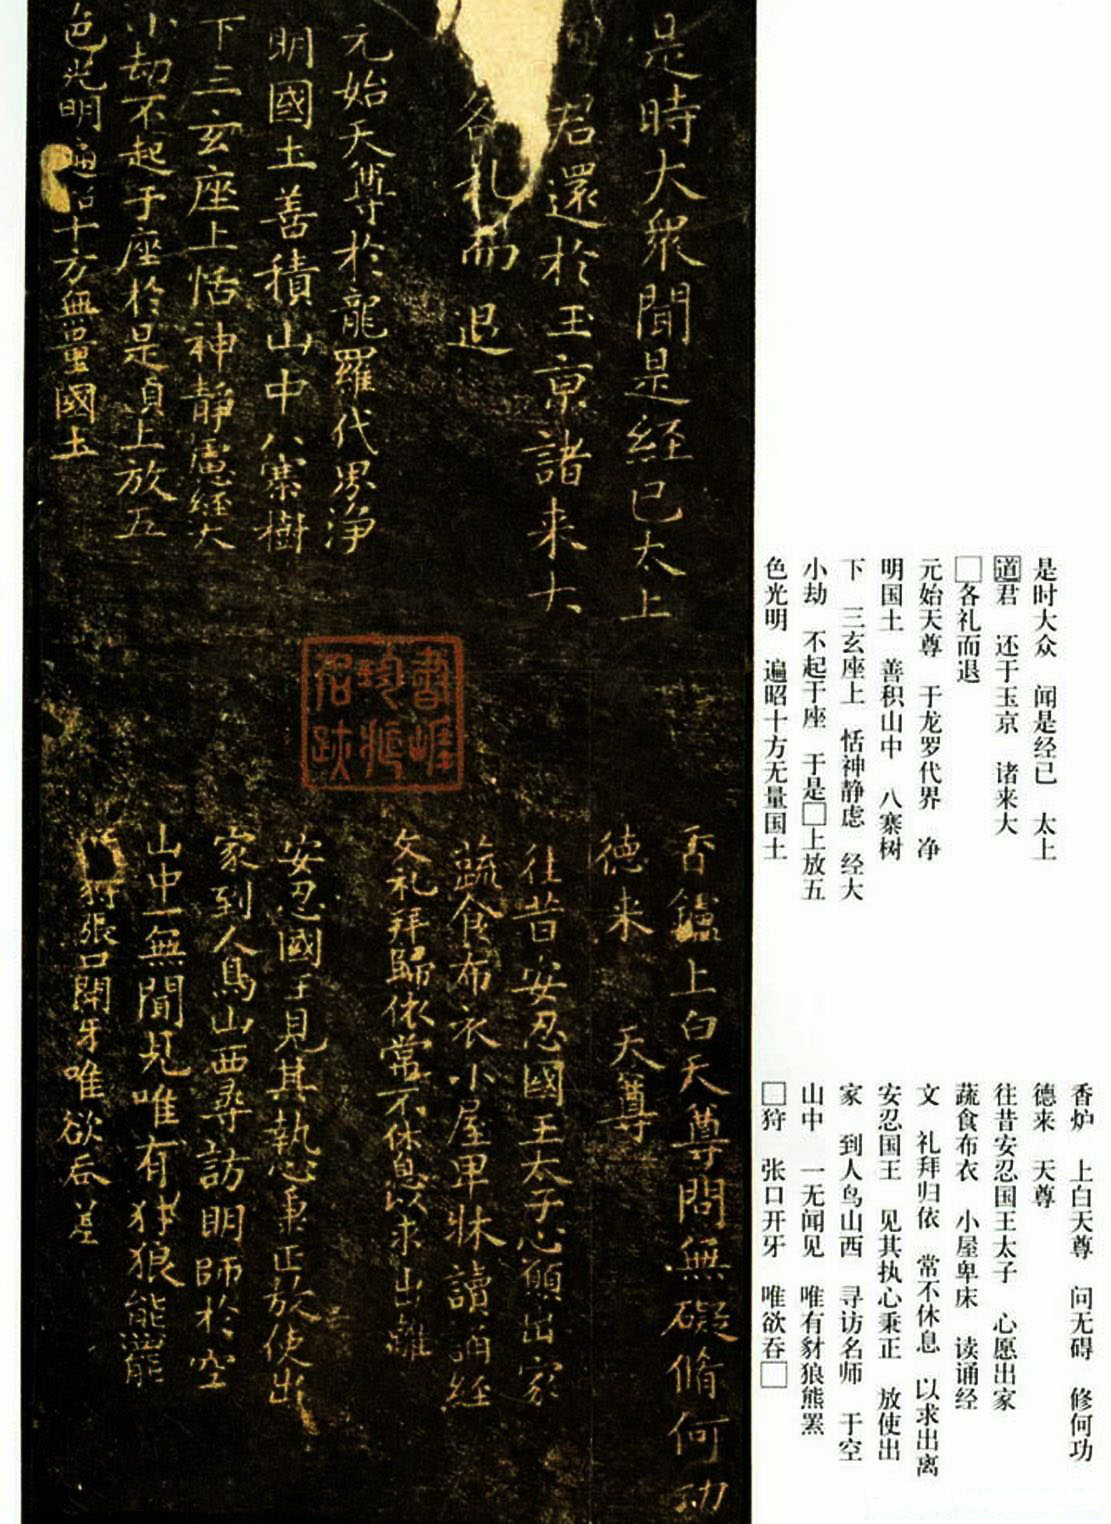 是時大衆聞是經已太上
君還於玉京諸来大
各礼而退
元始天尊於龍羅代界净
明國土善積山中八寨樹
下三玄座上恬神静慮經大
小劫不起于座於是真上放五
色光明遍昭十方無量國土
書崕
珍藏
名跡
香鑪上白天尊問無礙脩何功
德来 天尊
往昔安忍國王太子心願出家
蔬食布衣小屋卑牀讀誦經
文礼拜歸依常不休息以求出離
安忍國王見其執心秉正放使出
家到人鳥山西尋訪明師於空
山中一無聞見唯有犲狼熊羆
狩張口開牙唯欲吞
是时大众 闻是经已 太上
道君 还于玉京 诸来大
□各礼而退
元始天尊 于龙罗代界 净
明国土 善积山中 八寨树
下 三玄座上 恬神静虑 经大
小劫 不起于座 于是□上放五
色光明 遍昭十方无量国土
香炉 上白天尊 问无碍 修何功
德来 天尊
往昔安忍国王太子 心愿出家
蔬食布衣 小屋卑床 读诵经
文 礼拜归依 常不休息 以求出离
安忍国王 见其执心秉正 放使出
家 到人鸟山西 寻访名师 于空
山中 一无闻见 唯有豺狼熊罴
□狩 张口开牙 唯欲吞□